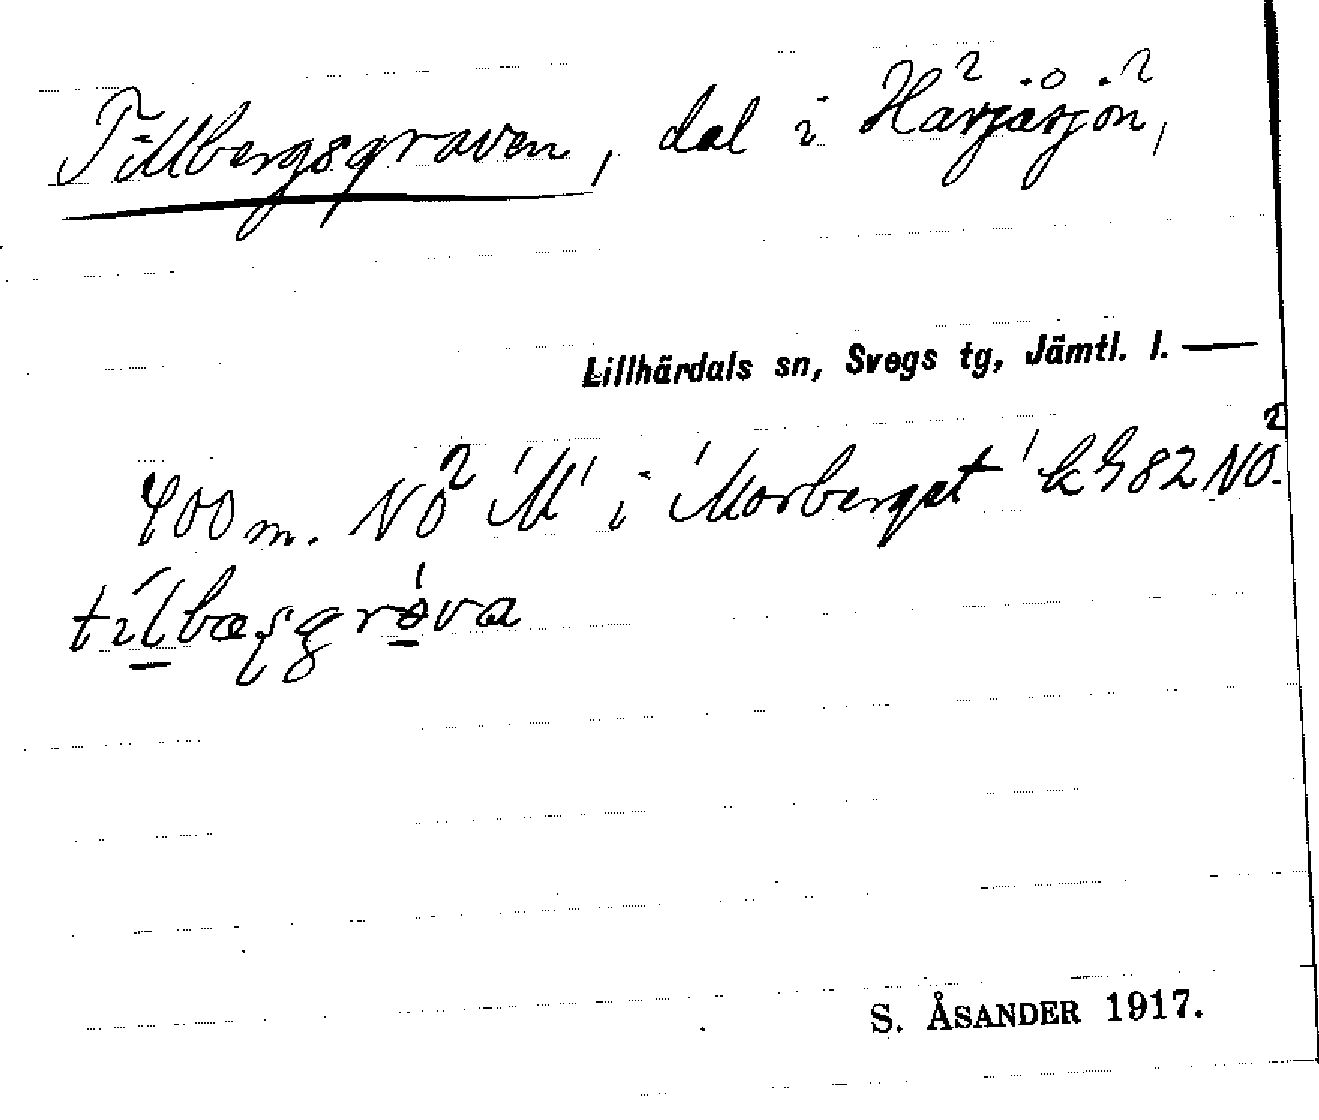 Tillbergsgraven, dal i Härjåsjön,
Lillhärdals sn, Svegs tg, Jämtl. l. —
400 m. NÖ "M" i "Morberget" k 982 NÖ.
tilbæsgrøva
S. ÅSANDER 1917.